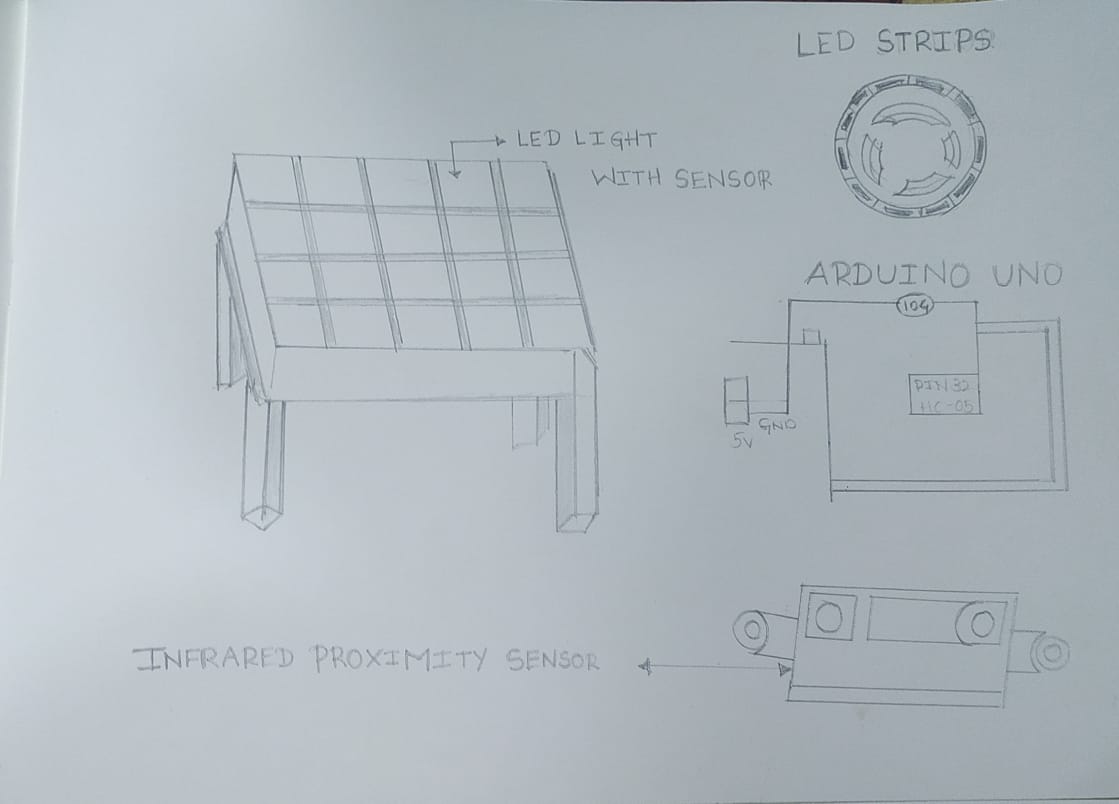 LED STRIPS
LED LIGHT
WITH SENSOR
ARDUINO UNO
104
PIN 32
HC-05
GND
5V
INFRARED PROXIMITY SENSOR